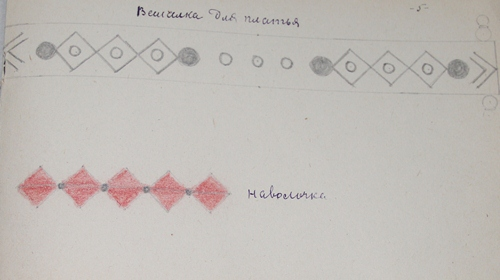 Вешалка для платья
-5-
наволочка